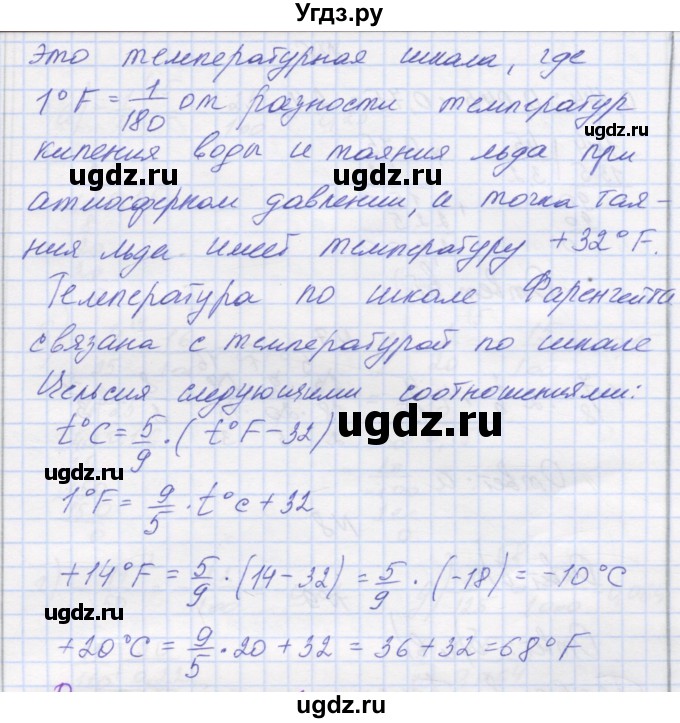 Угдз.ру
это температурная шкала, где
1°F = 1/180 от разности температур
кипения воды и таяния льда при
атмосферном давлении, а точка тая-
ния льда имеет температуру +32°F.
Температура по шкале Фаренгейта
связана с температурой по шкале
Цельсия следующими соотношениями:
t°C = 5/9 · (t°F − 32)
1°F = 9/5 · t°C + 32
+14°F = 5/9 · (14 − 32) = 5/9 · (−18) = −10°C
+20°C = 9/5 · 20 + 32 = 36 + 32 = 68°F
ugdz.ru
ugdz.ru
ugdz.ru
ugdz.ru
ugdz.ru
ugdz.ru
ugdz.ru
ugdz.ru